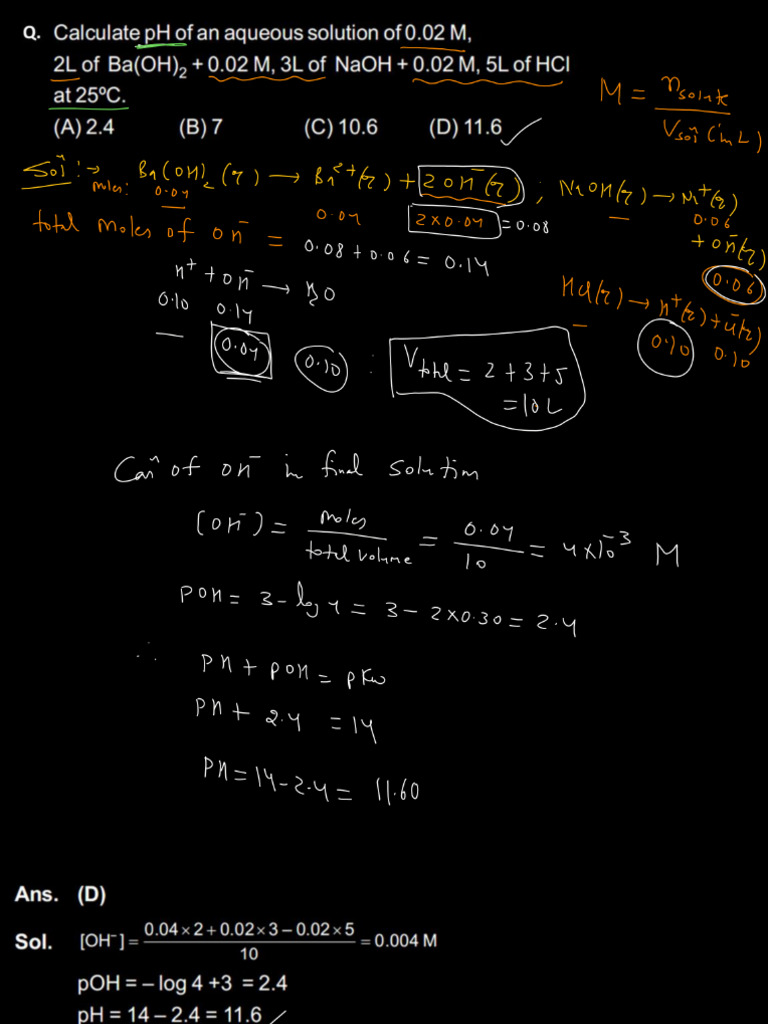 Q. Calculate pH of an aqueous solution of 0.02 M,
2L of Ba(OH)₂ + 0.02 M, 3L of NaOH + 0.02 M, 5L of HCl
at 25ºC.
(A) 2.4 (B) 7 (C) 10.6 (D) 11.6 ✓
M = n solute / V solⁿ (in L)
Solⁿ :→ Ba(OH)₂(q) → Ba²⁺(q) + 2OH⁻(q) ; NaOH(q) → Na⁺(q) + OH⁻(q)
moles: 0.04 0.04 2×0.04 = 0.08 0.06 0.06
total moles of OH⁻ = 0.08 + 0.06 = 0.14
HCl(q) → H⁺(q) + Cl⁻(q)
0.10 0.10
H⁺ + OH⁻ → H₂O
0.10 0.14
— 0.04 0.10 : V total = 2 + 3 + 5
= 10 L
Conⁿ of OH⁻ in final solution
[OH⁻] = moles / total volume = 0.04 / 10 = 4×10⁻³ M
pOH = 3 – log 4 = 3 – 2×0.30 = 2.4
∴ pH + pOH = pKw
pH + 2.4 = 14
pH = 14 – 2.4 = 11.60
Ans. (D)
Sol. [OH⁻] = (0.04 × 2 + 0.02 × 3 – 0.02 × 5) / 10 = 0.004 M
pOH = – log 4 +3 = 2.4
pH = 14 – 2.4 = 11.6 ✓